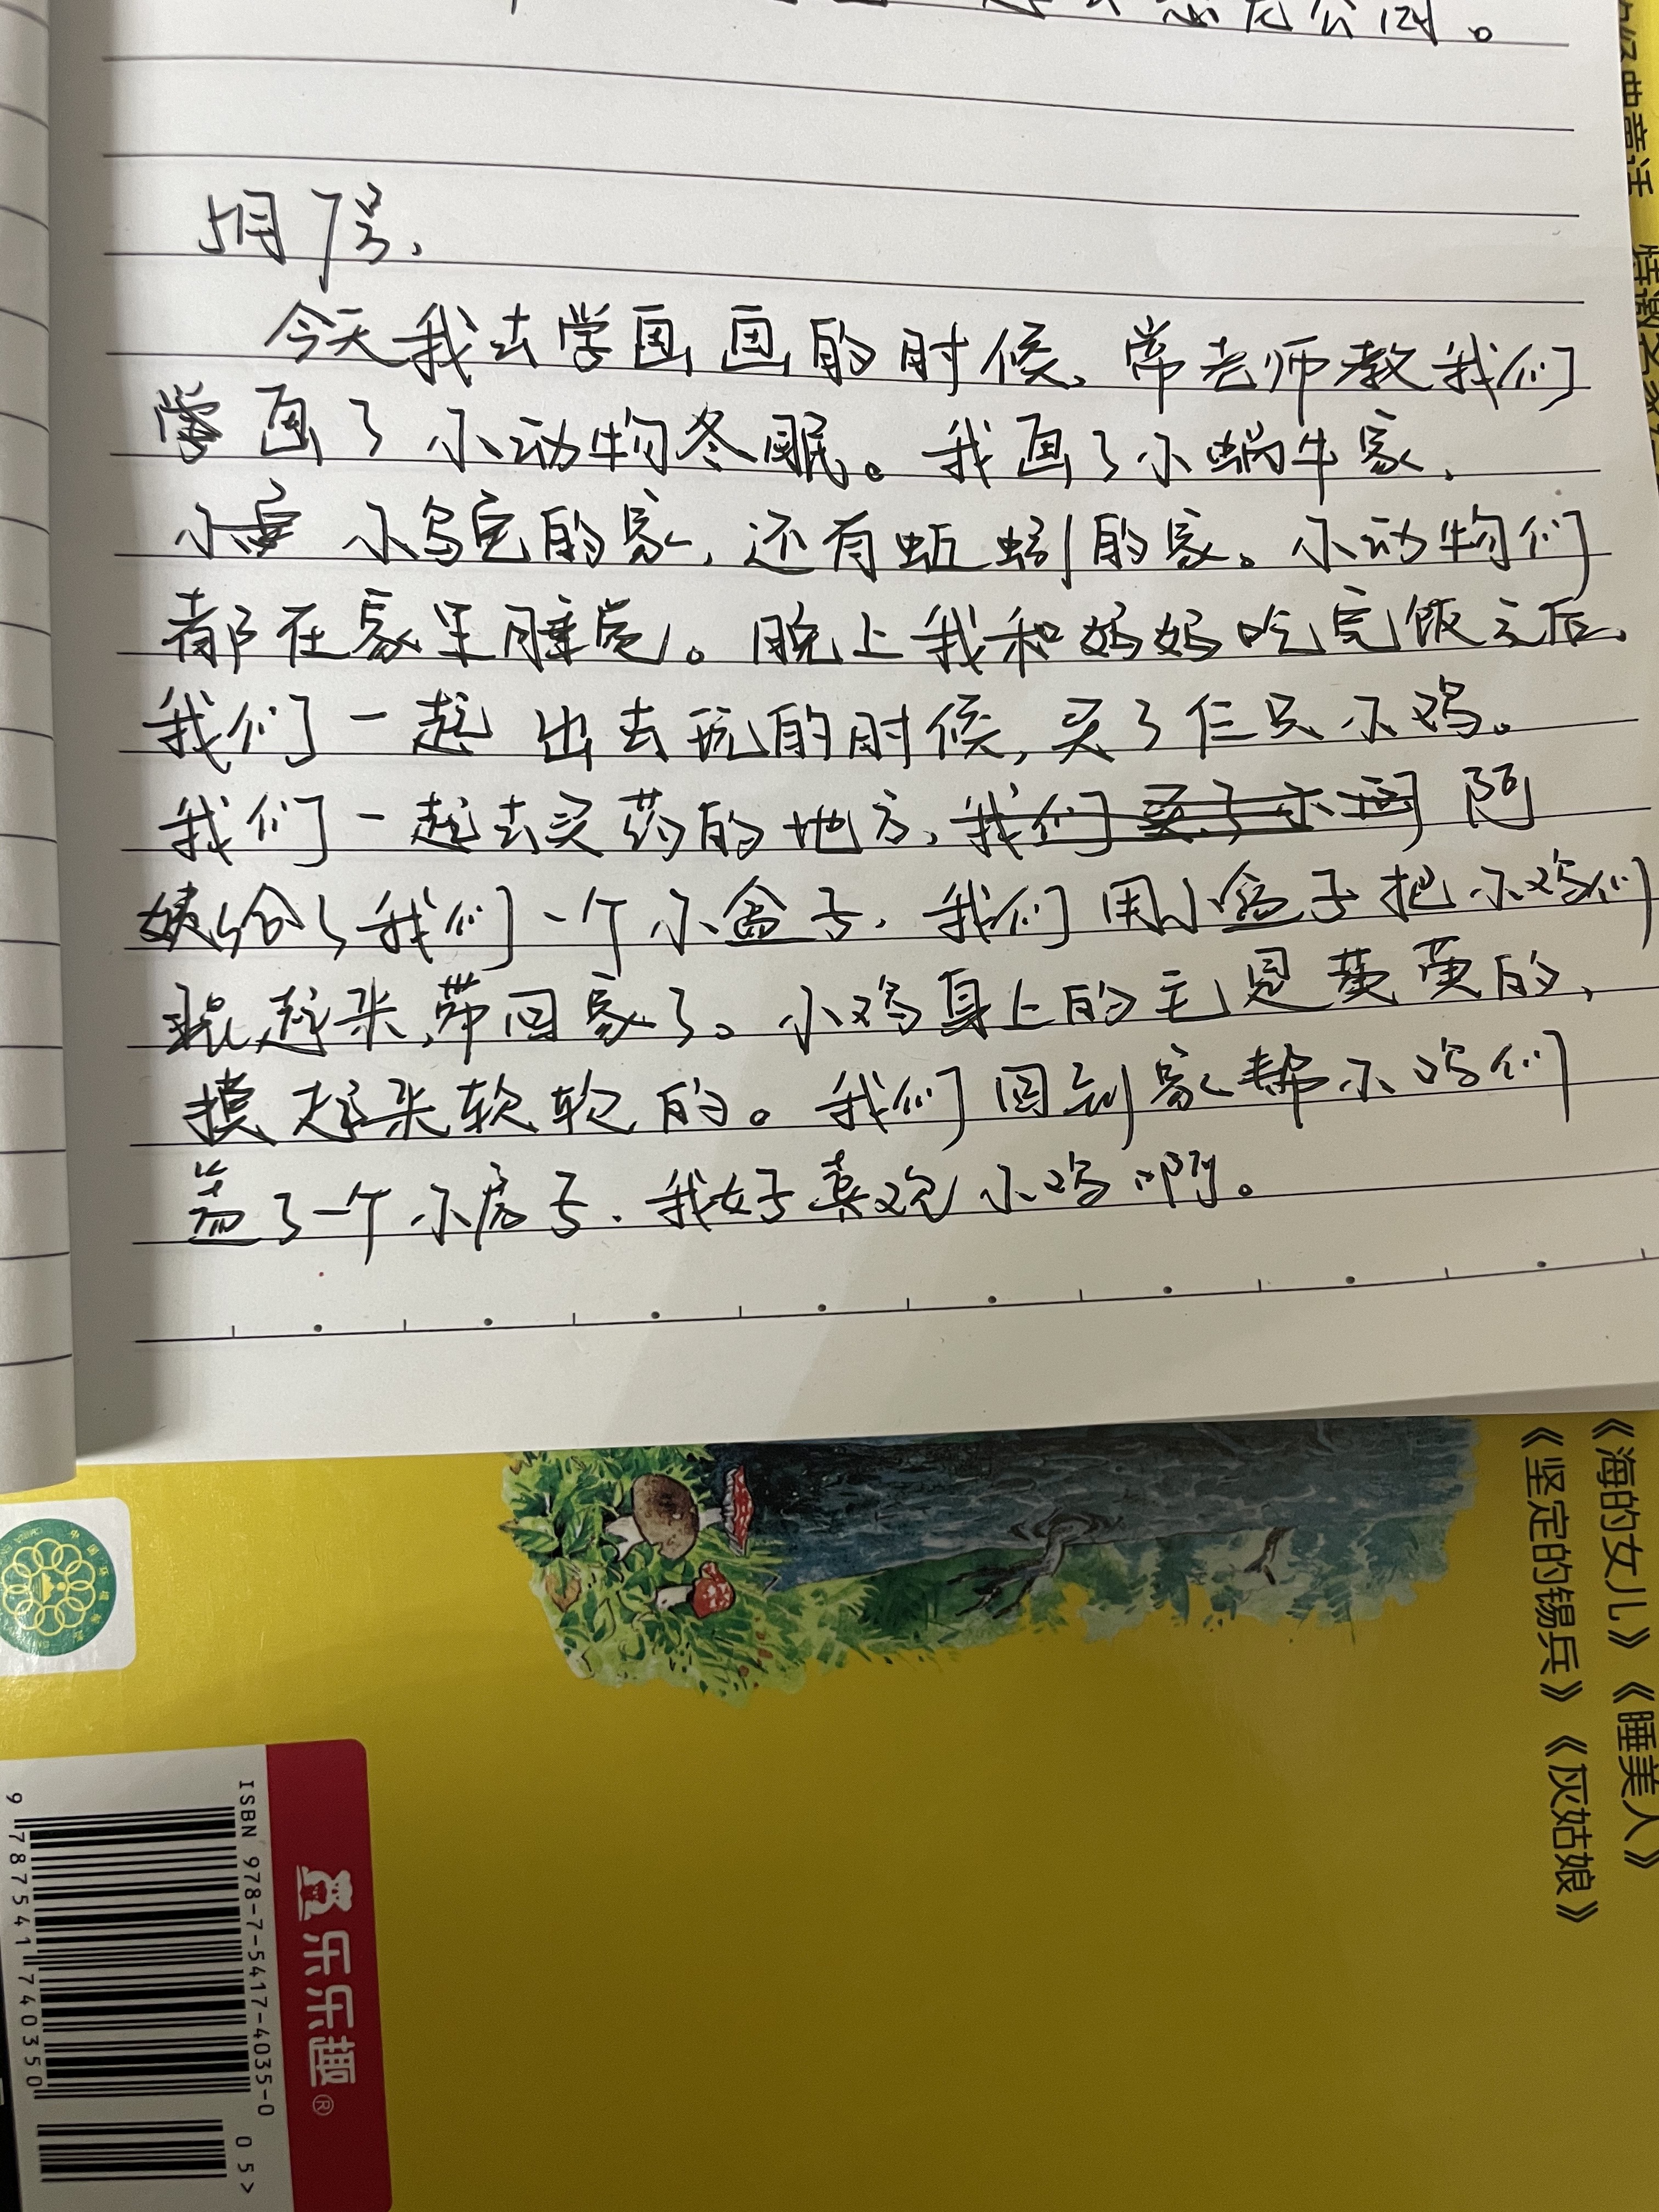 公园。
5月7号,
今天我去学画画的时候,常老师教我们
学画了小动物冬眠。我画了小蜗牛家,
小 小乌龟的家,还有蚯蚓的家。小动物们
都在家里睡觉。晚上我和妈妈吃完饭之后,
我们一起出去玩的时候,买了仨只小鸡。
我们一起去买药的地方,我们买了小 阿
姨给了我们一个小盒子,我们用小盒子把小鸡们
起来,带回家了。小鸡身上的毛是黄黄的,
摸起来软软的。我们回到家帮小鸡们
盖了一个小房子,我好喜欢小鸡啊。
《海的女儿》《睡美人》
《坚定的锡兵》《灰姑娘》
乐乐趣®
ISBN 978-7-5417-4035-0
9 787541 740350
05>